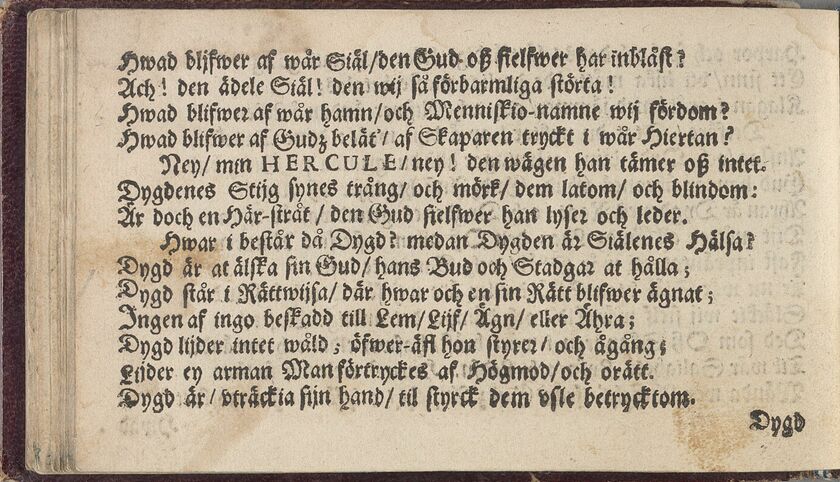 Hwad blifwer af wår Siäl/den Gud oß sielfwer har inblåst?
Ach! den ädele Siäl! den wij så förbarmliga störta!
Hwad blifwer af wår hamn/och Menniskio-namne wij fördom?
Hwad blifwer af Gudz belät/ af Skaparen tryckt i wår Hiertan?
Ney/ min HERCULE/ney! den wägen han tämer oß intet.
Dygdenes Stijg synes trång/ och mörk/ dem latom/ och blindom:
Är doch en Här-stråt/ den Gud sielfwer han lyser och leder.
Hwar i består då Dygd? medan Dygden är Siälenes Hälsa?
Dygd är at älska sin Gud/ hans Bud och Stadgar at hålla;
Dygd står i Rättwijsa/ där hwar och en sin Rätt blifwer ägnat;
Ingen af ingo beskadd till Lem/Lijf/ Ägn/ eller Ähra;
Dygd lijder intet wåld; öfwer-äfl hon styrer/ och ågång;
Lijder ey arman Man förtryckes af Högmod/och orätt.
Dygd är/ vträckia sijn hand/ til styrck dem vsle betrycktom.
Dygd